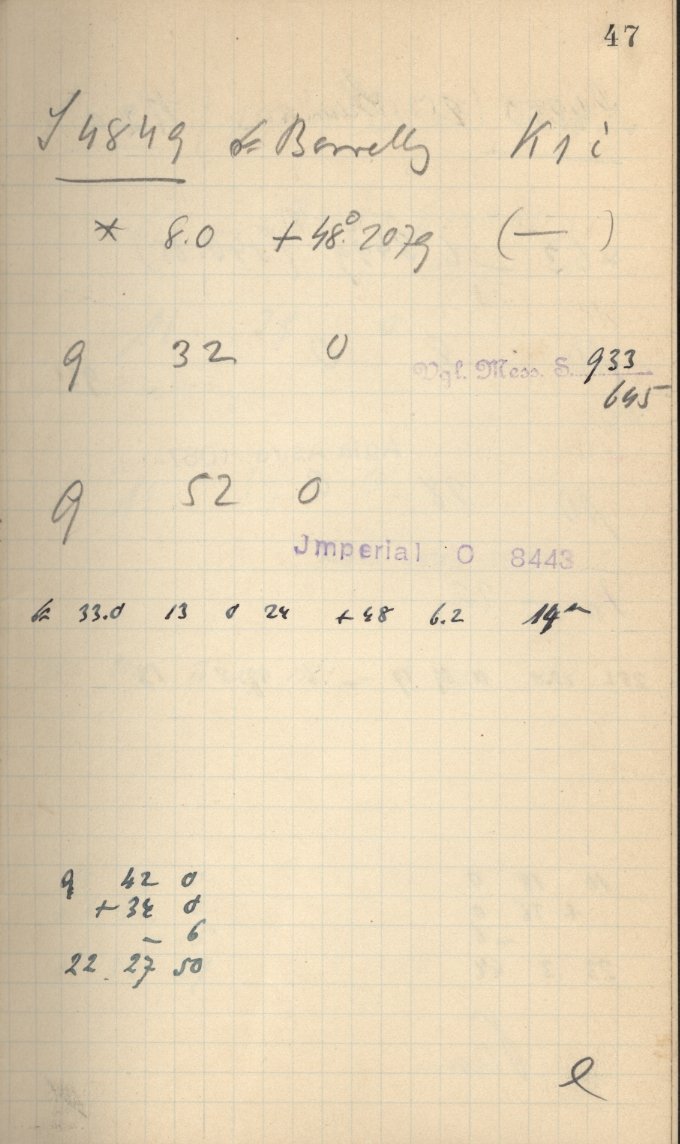 47
J 4849 ☄ Borrelly K1 i
* 8.0 +48°.2079 (—)
9 32 0
Vgl. Mess. S. 933
645
9 52 0
Jmperial O 8443
☄ 33.0 13 0 24 +48 6.2 14ᵐ
9 42 0
+34 0
- 6
22 27 50
e